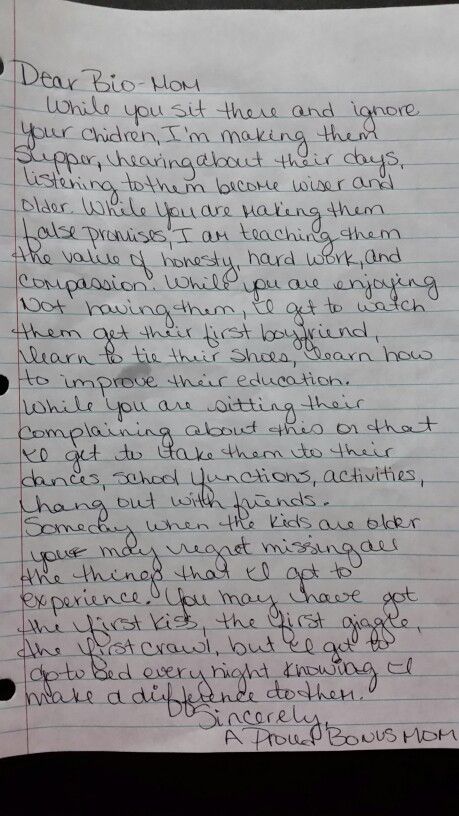 Dear Bio-Mom
While you sit there and ignore
your chidren, I'm making them
Supper, hearing about their days,
listening to them become wiser and
older. While you are making them
false promises, I am teaching them
the value of honesty, hard work, and
compassion. While you are enjoying
Not having them, I get to watch
them get their first boyfriend,
learn to tie their shoes, learn how
to improve their education.
While you are sitting their
complaining about this or that
I get to take them to their
dances, school functions, activities,
hang out with friends.
Someday when the kids are older
you may regret missing all
the things that I got to
experience. You may have got
the first kiss, the first giggle,
the first crawl, but I get to
go to bed every night knowing I
make a difference to them.
Sincerely,
A Proud Bonus Mom